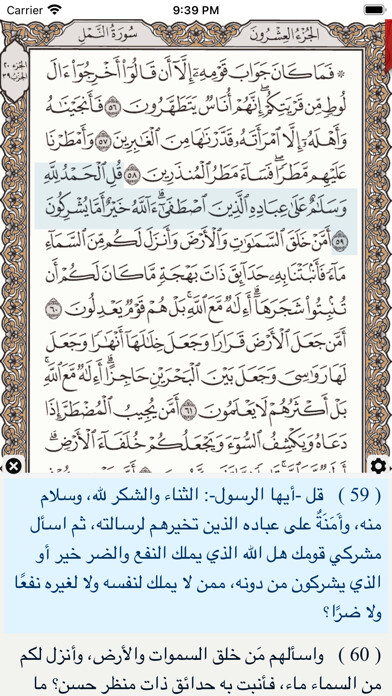 Carrier 9:39 PM
الجُزْءُ العِشْرُونَ سُورَةُ النَّمْل
الجزء ٢٠
الحزب ٣٩
۞ فَمَا كَانَ جَوَابَ قَوْمِهِۦٓ إِلَّآ أَن قَالُوٓا۟ أَخْرِجُوٓا۟ ءَالَ
لُوطٍ مِّن قَرْيَتِكُمْ ۖ إِنَّهُمْ أُنَاسٌ يَتَطَهَّرُونَ ٥٦ فَأَنجَيْنَٰهُ
وَأَهْلَهُۥٓ إِلَّا ٱمْرَأَتَهُۥ قَدَّرْنَٰهَا مِنَ ٱلْغَٰبِرِينَ ٥٧ وَأَمْطَرْنَا
عَلَيْهِم مَّطَرًا ۖ فَسَآءَ مَطَرُ ٱلْمُنذَرِينَ ٥٨ قُلِ ٱلْحَمْدُ لِلَّهِ
وَسَلَٰمٌ عَلَىٰ عِبَادِهِ ٱلَّذِينَ ٱصْطَفَىٰٓ ۗ ءَآللَّهُ خَيْرٌ أَمَّا يُشْرِكُونَ
٥٩ أَمَّنْ خَلَقَ ٱلسَّمَٰوَٰتِ وَٱلْأَرْضَ وَأَنزَلَ لَكُم مِّنَ ٱلسَّمَآءِ
مَآءً فَأَنۢبَتْنَا بِهِۦ حَدَآئِقَ ذَاتَ بَهْجَةٍ مَّا كَانَ لَكُمْ أَن
تُنۢبِتُوا۟ شَجَرَهَآ ۗ أَءِلَٰهٌ مَّعَ ٱللَّهِ ۚ بَلْ هُمْ قَوْمٌ يَعْدِلُونَ ٦٠
أَمَّن جَعَلَ ٱلْأَرْضَ قَرَارًا وَجَعَلَ خِلَٰلَهَآ أَنْهَٰرًا وَجَعَلَ
لَهَا رَوَٰسِىَ وَجَعَلَ بَيْنَ ٱلْبَحْرَيْنِ حَاجِزًا ۗ أَءِلَٰهٌ مَّعَ ٱللَّهِ ۚ
بَلْ أَكْثَرُهُمْ لَا يَعْلَمُونَ ٦١ أَمَّن يُجِيبُ ٱلْمُضْطَرَّ إِذَا
دَعَاهُ وَيَكْشِفُ ٱلسُّوٓءَ وَيَجْعَلُكُمْ خُلَفَآءَ ٱلْأَرْضِ ۗ
( 59 ) قل -أيها الرسول-: الثناء والشكر لله، وسلام
منه، وأَمَنَةٌ على عباده الذين تخيرهم لرسالته، ثم اسأل
مشركي قومك هل الله الذي يملك النفع والضر خير أو
الذي يشركون من دونه، ممن لا يملك لنفسه ولا لغيره نفعًا
ولا ضرًا؟
( 60 ) واسألهم مَن خلق السموات والأرض، وأنزل لكم
من السماء ماء، فأنبت به حدائق ذات منظر حسن؟ ما